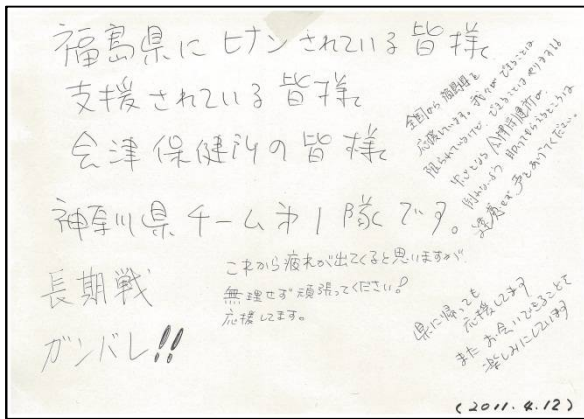 福島県にヒナンされている皆様
支援されている皆様
会津保健所の皆様
神奈川県チーム第1隊です。
長期戦
ガンバレ!!
これから疲れが出てくると思いますが
無理せず頑張ってください!
応援してます。
全国から福島県を
応援しています。我々ができることは
限られているけど、できることはやりますね
会津保健所が
倒れないよう 助けてもらえるところは
遠慮せず声をあげてください。
県に帰っても
応援してます
また お会いできることを
楽しみにしています
(2011.4.12)